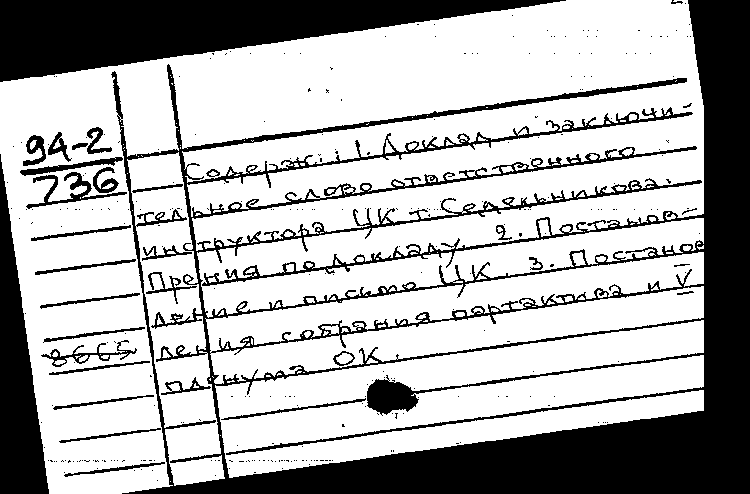 94-2
736
Содерж.: 1. Доклад и заключи-
тельное слово ответственного
инструктора ЦК т. Седельникова.
Прения по докладу. 2. Постанов-
ление и письмо ЦК. 3. Постанов
ления собрания партактива и V
пленума ОК.
8665